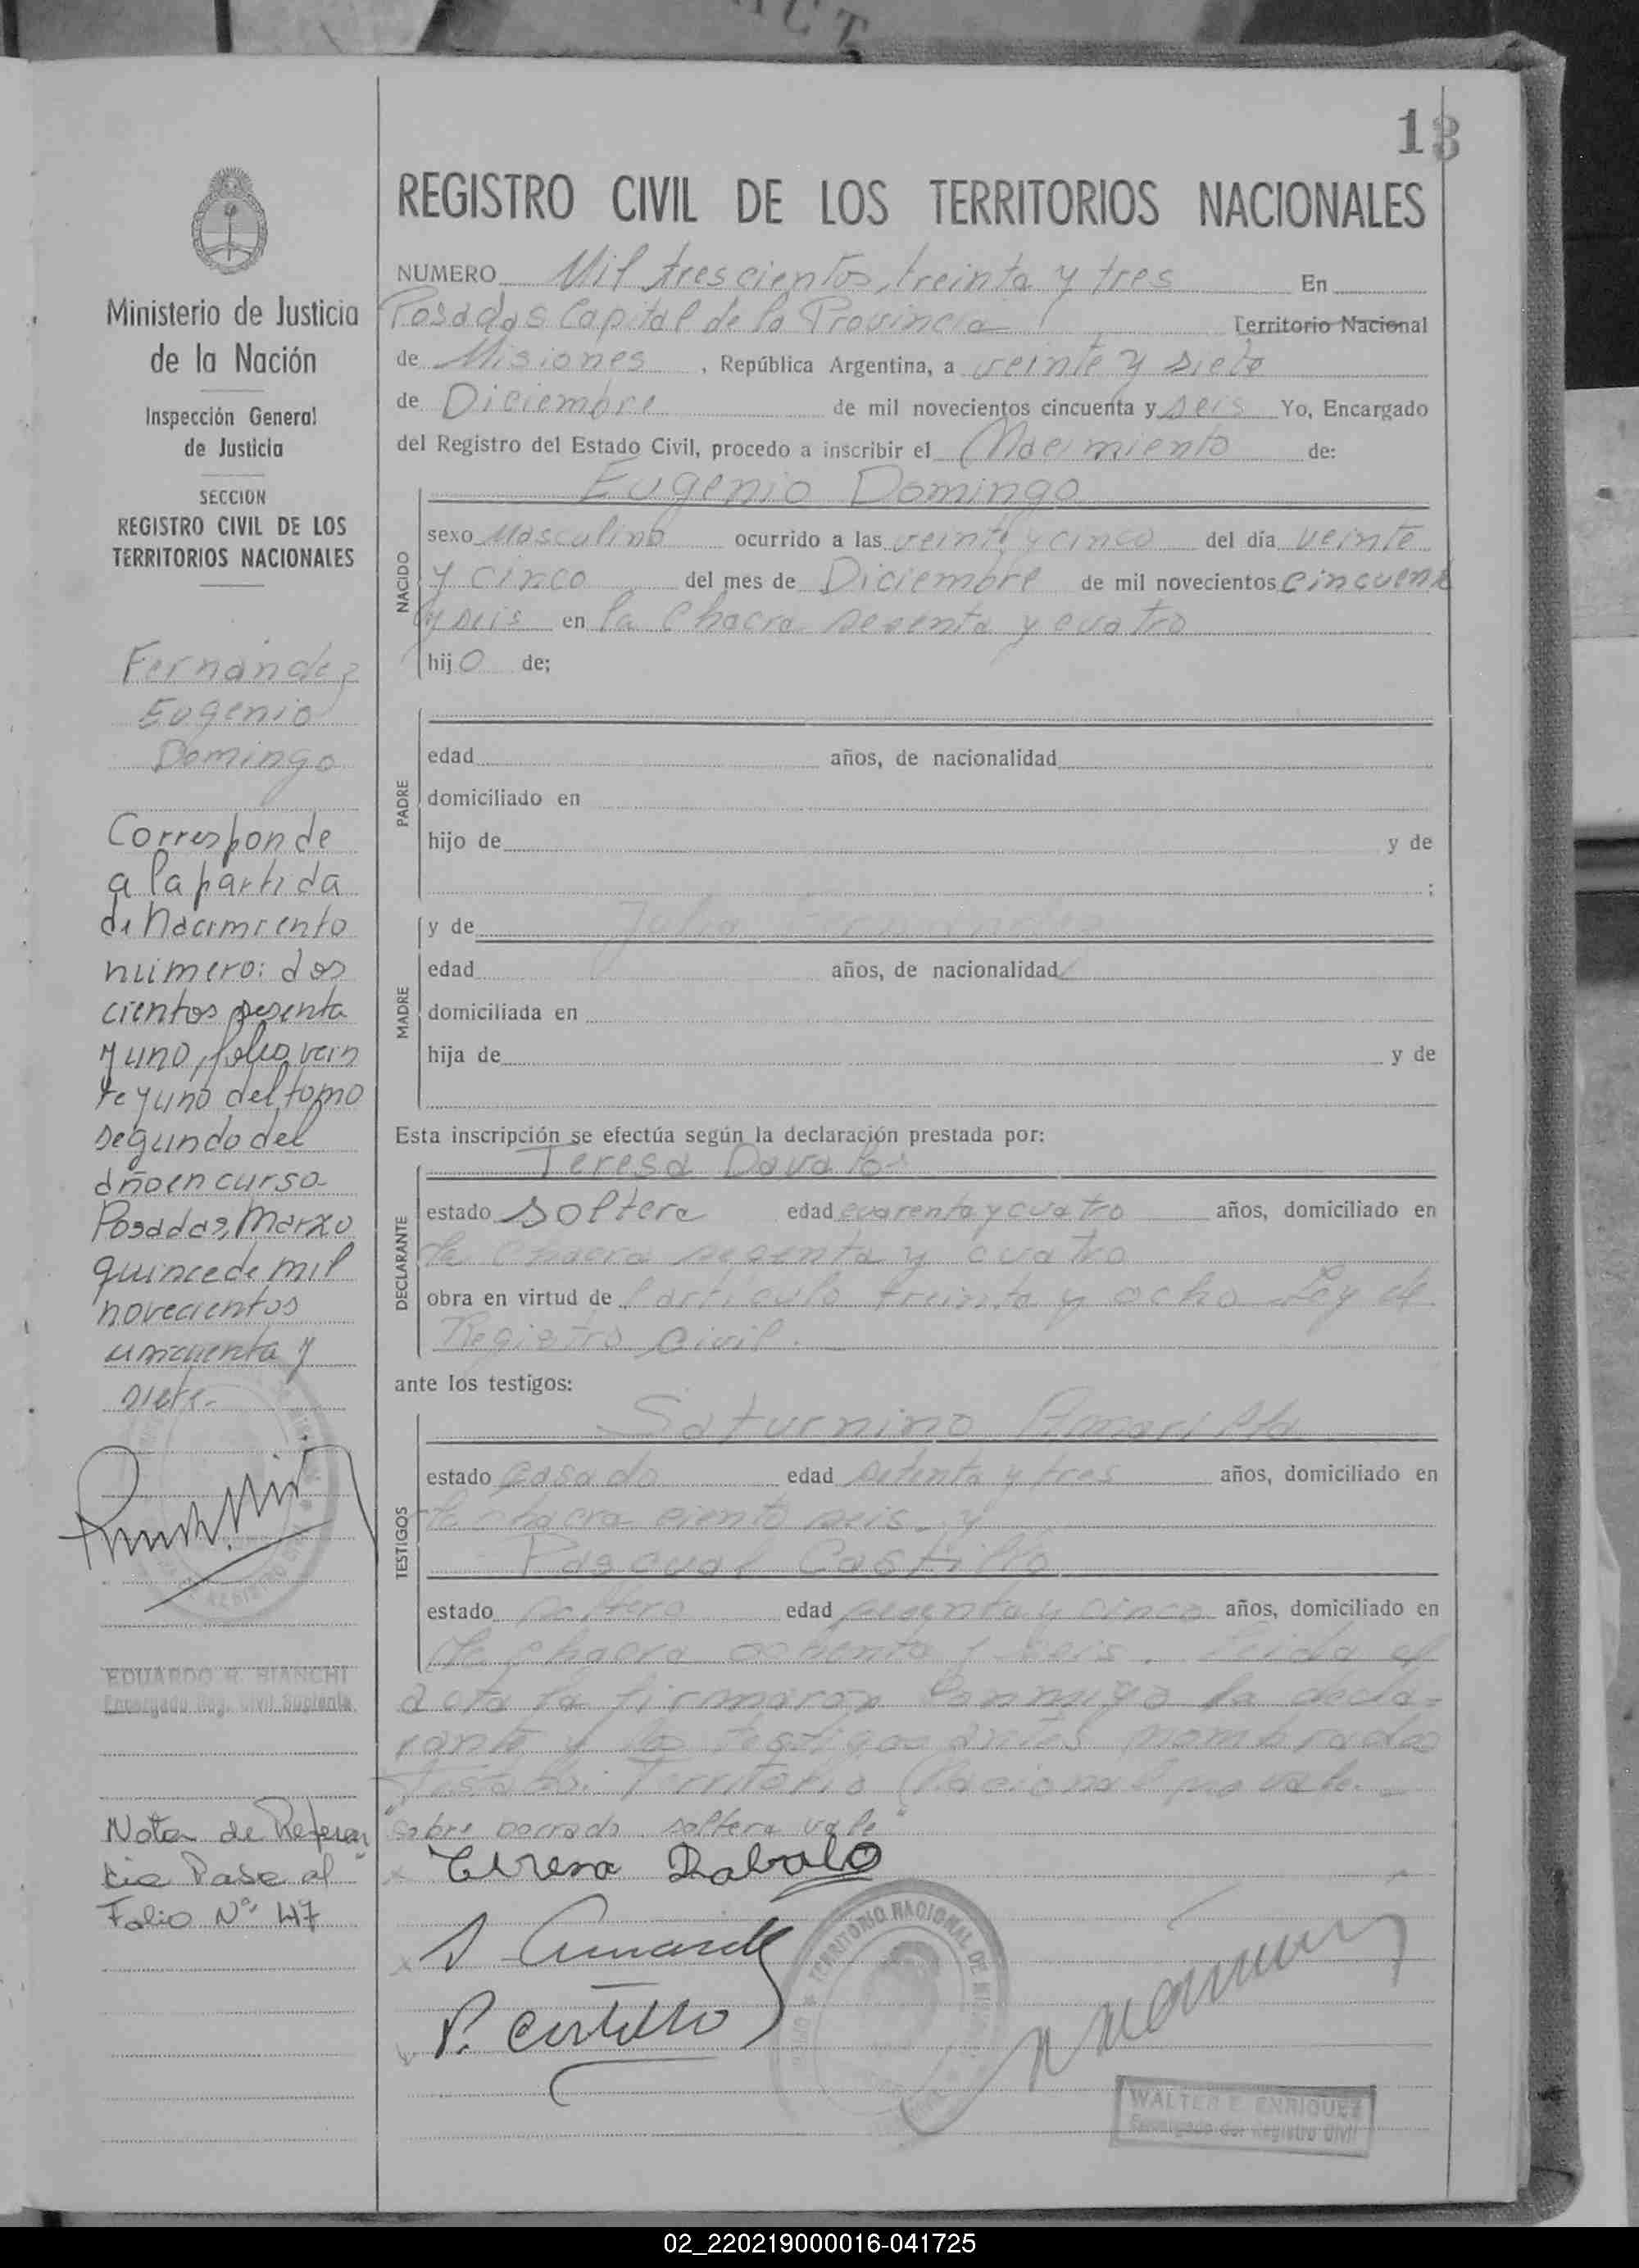 13
REGISTRO CIVIL DE LOS TERRITORIOS NACIONALES
Ministerio de Justicia
de la Nación
Inspección General
de Justicia
SECCION
REGISTRO CIVIL DE LOS
TERRITORIOS NACIONALES
Fernández
Eugenio
Domingo
Corresponde
a la partida
de Nacimiento
número: dos
cientos sesenta
y uno, folio vein
te y uno del tomo
segundo del
año en curso
Posadas, Marzo
quince de mil
novecientos
cincuenta y
siete.-
EDUARDO R. BIANCHI
Encargado Reg. Civil Suplente
Nota de Referen
cia Pase al
Folio Nº 47
NUMERO Mil trescientos treinta y tres En
Posadas Capital de la Provincia Territorio Nacional
de Misiones, República Argentina, a veinte y siete
de Diciembre de mil novecientos cincuenta y seis Yo, Encargado
del Registro del Estado Civil, procedo a inscribir el Nacimiento de:
Eugenio Domingo
NACIDO
sexo Masculino ocurrido a las veinte y cinco del día veinte
y cinco del mes de Diciembre de mil novecientos cincuenta
y seis en la Chacra sesenta y cuatro
hijo de;
PADRE
edad años, de nacionalidad
domiciliado en
hijo de y de
;
MADRE
y de Julia Fernández
edad años, de nacionalidad
domiciliada en
hija de y de
Esta inscripción se efectúa según la declaración prestada por:
Teresa Davalos
DECLARANTE
estado soltera edad cuarenta y cuatro años, domiciliado en
la chacra sesenta y cuatro
obra en virtud de l artículo treinta y ocho Ley de
Registro Civil.
ante los testigos:
Saturnino Amarilla
TESTIGOS
estado casado edad setenta y tres años, domiciliado en
la chacra ciento seis y
Pascual Castillo
estado soltero edad sesenta y cinco años, domiciliado en
la chacra ochenta y seis. Leida el
acta la firmaron conmigo la decla-
rante y los testigos antes nombrados
Testado: Territorio Nacional no vale.-
"sobre borrado soltera vale"
Teresa Dabalo
P. Castillo
TERRITORIO NACIONAL DE
WALTER E. ENRIQUEZ
Encargado del Registro Civil
02_220219000016-041725